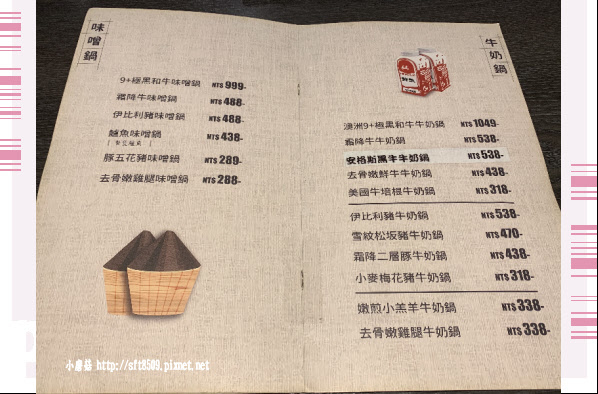 味噌鍋
9+極黑和牛味噌鍋 NT$ 999-
霜降牛味噌鍋 NT$ 488-
伊比利豬味噌鍋 NT$ 488-
鱸魚味噌鍋 NT$ 438-
豚五花豬味噌鍋 NT$ 289-
去骨嫩雞腿味噌鍋 NT$ 288-
牛奶鍋
澳洲9+極黑和牛牛奶鍋 NT$ 1049-
霜降牛牛奶鍋 NT$ 538-
安格斯黑牛牛奶鍋 NT$ 538-
去骨嫩鮮牛牛奶鍋 NT$ 438-
美國牛培根牛奶鍋 NT$ 318-
伊比利豬牛奶鍋 NT$ 538-
雪紋松坂豬牛奶鍋 NT$ 470-
霜降二層豚牛奶鍋 NT$ 438-
小麥梅花豬牛奶鍋 NT$ 318-
嫩煎小羔羊牛奶鍋 NT$ 338-
去骨嫩雞腿牛奶鍋 NT$ 338-
小蘑菇 http://sft8509.pixnet.net